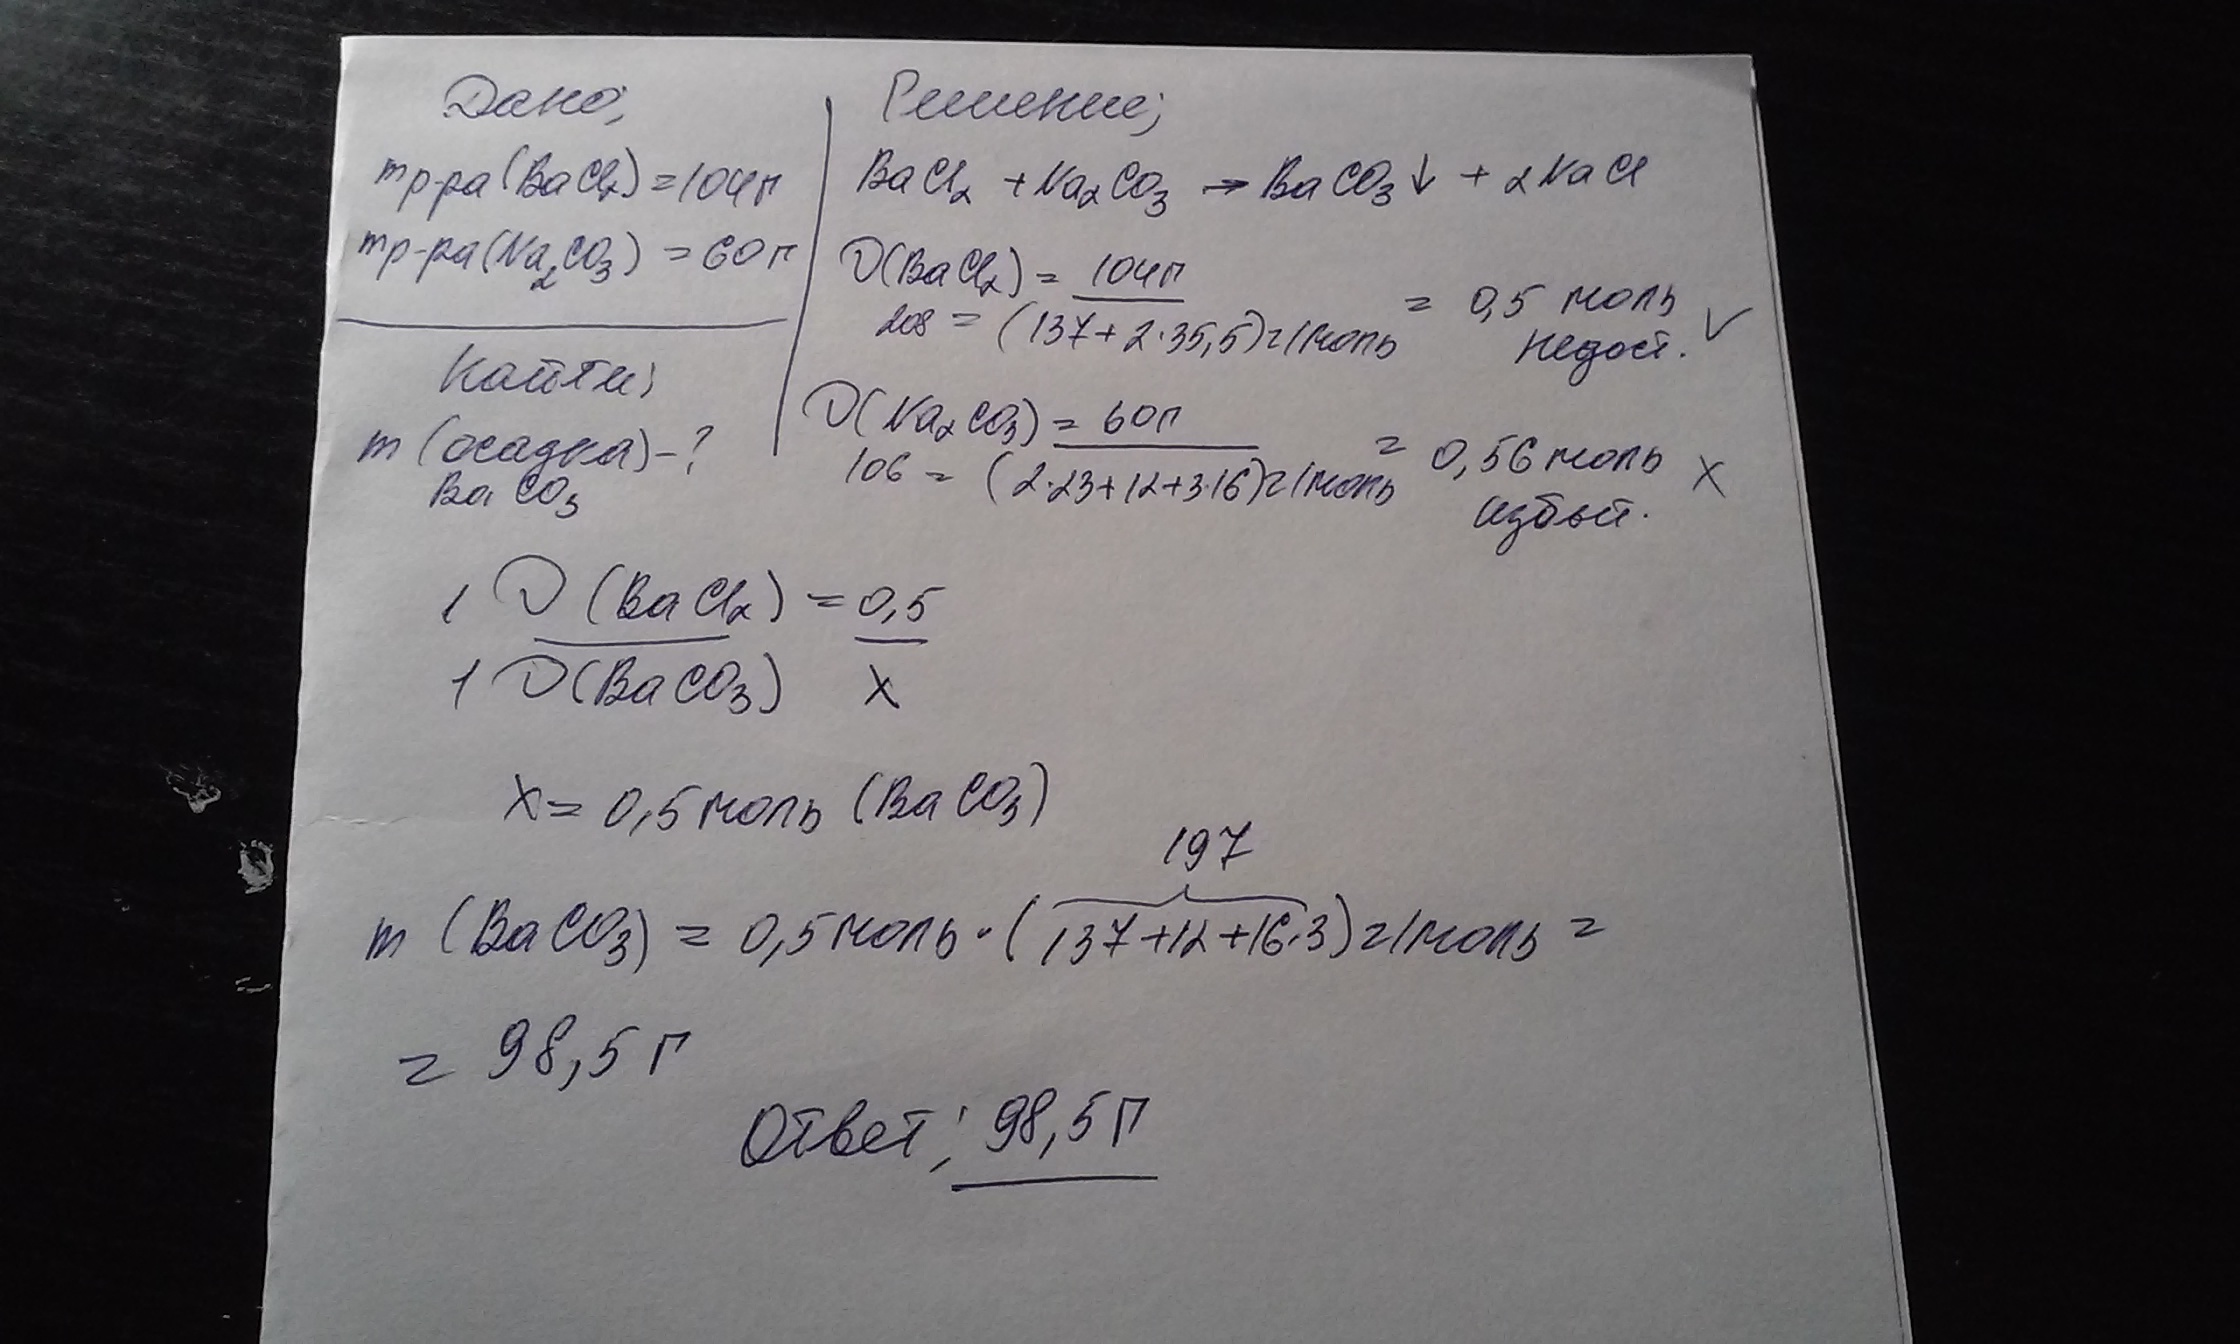 Дано:
mр-ра(BaCl₂)=104г
mр-ра(Na₂CO₃)=60г
Найти:
m(осадка)-?
BaCO₃
Решение:
BaCl₂ + Na₂CO₃ → BaCO₃↓ + 2NaCl
ν(BaCl₂) = 104г = 0,5 моль ✓
208 = (137+2·35,5)г/моль недост.
ν(Na₂CO₃) = 60г = 0,56 моль ×
106 = (2·23+12+3·16)г/моль избыт.
1 ν(BaCl₂) = 0,5
1 ν(BaCO₃) x
x = 0,5 моль (BaCO₃)
197
m(BaCO₃) = 0,5 моль·(137+12+16·3)г/моль =
= 98,5 г
Ответ: 98,5г